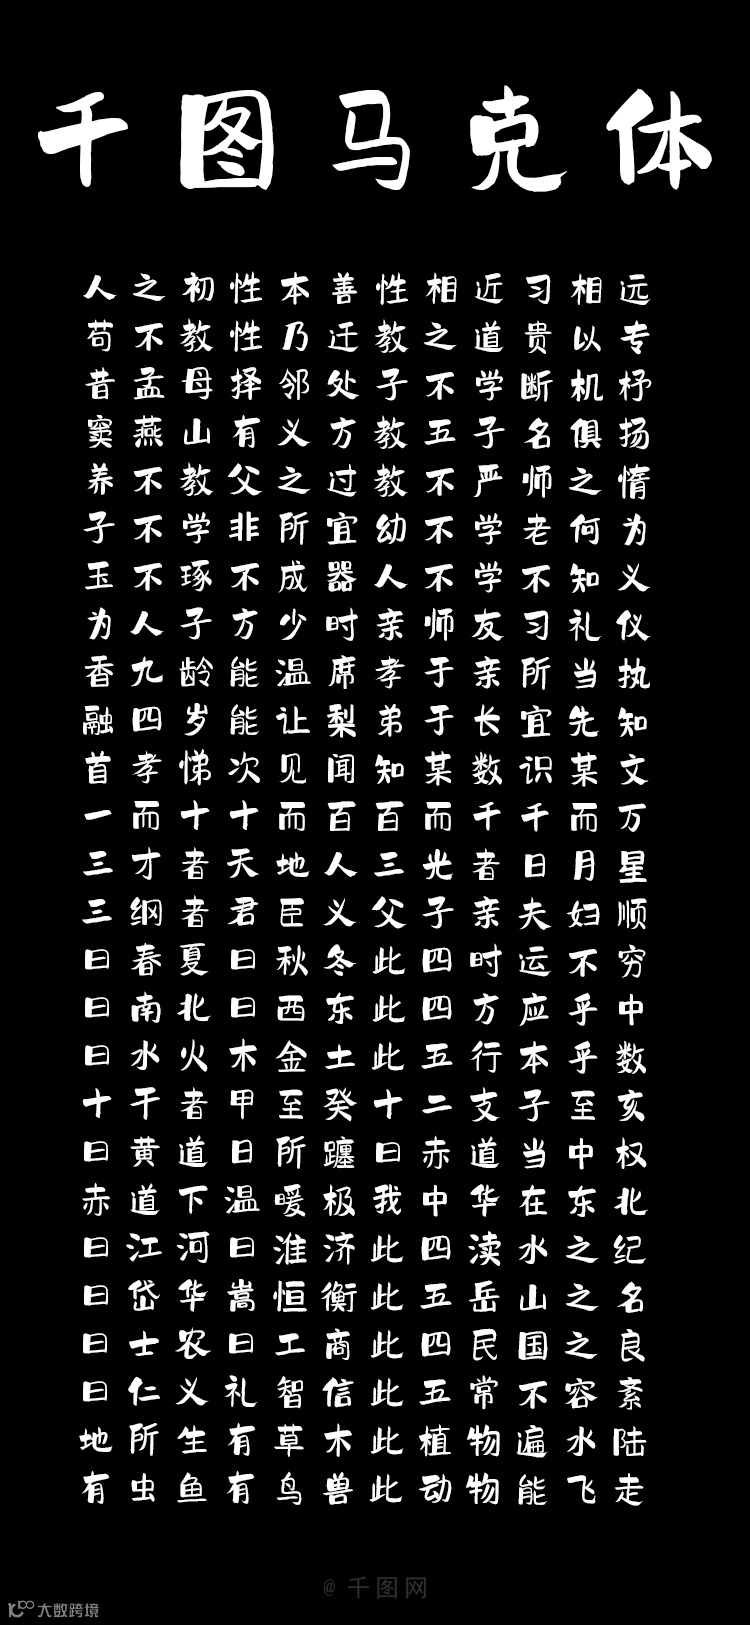 千图马克体
人之初性本善性相近习相远
苟不教性乃迁教之道贵以专
昔孟母择邻处子不学断机杼
窦燕山有义方教五子名俱扬
养不教父之过教不严师之惰
子不学非所宜幼不学老何为
玉不琢不成器人不学不知义
为人子方少时亲师友习礼仪
香九龄能温席孝于亲所当执
融四岁能让梨弟于长宜先知
首孝悌次见闻知某数识某文
一而十十而百百而千千而万
三才者天地人三光者日月星
三纲者君臣义父子亲夫妇顺
曰春夏曰秋冬此四时运不穷
曰南北曰西东此四方应乎中
曰水火木金土此五行本乎数
十干者甲至癸十二支子至亥
曰黄道日所躔曰赤道当中权
赤道下温暖极我中华在东北
曰江河曰淮济此四渎水之纪
曰岱华嵩恒衡此五岳山之名
曰士农曰工商此四民国之良
曰仁义礼智信此五常不容紊
地所生有草木此植物遍水陆
有虫鱼有鸟兽此动物能飞走
@千图网
大数跨境